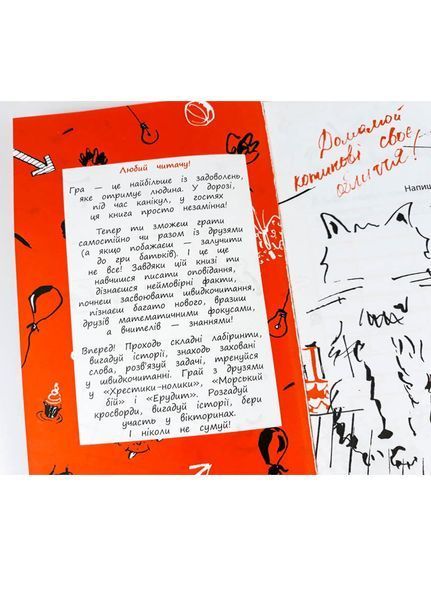 Любий читачу!
Гра — це найбільше із задоволень,
яке отримує людина. У дорозі,
під час канікул, у гостях
ця книга просто незамінна!
Тепер ти зможеш грати
самостійно чи разом із друзями
(а якщо побажаєш — залучити
до гри батьків). І це ще
не все! Завдяки цій книзі ти
навчишся писати оповідання,
дізнаєшся неймовірні факти,
почнеш засвоювати швидкочитання,
пізнаєш багато нового, вразиш
друзів математичними фокусами,
а вчителів — знаннями!
Вперед! Проходь складні лабіринти,
вигадуй історії, знаходь заховані
слова, розв'язуй задачі, тренуйся
у швидкочитанні. Грай з друзями
у «Хрестики-нолики», «Морський
бій» і «Ерудит». Розгадуй
кросворди, вигадуй історії, бери
участь у вікторинах.
І ніколи не сумуй!
Домалюй
котикові своє
обличчя!
Напиши